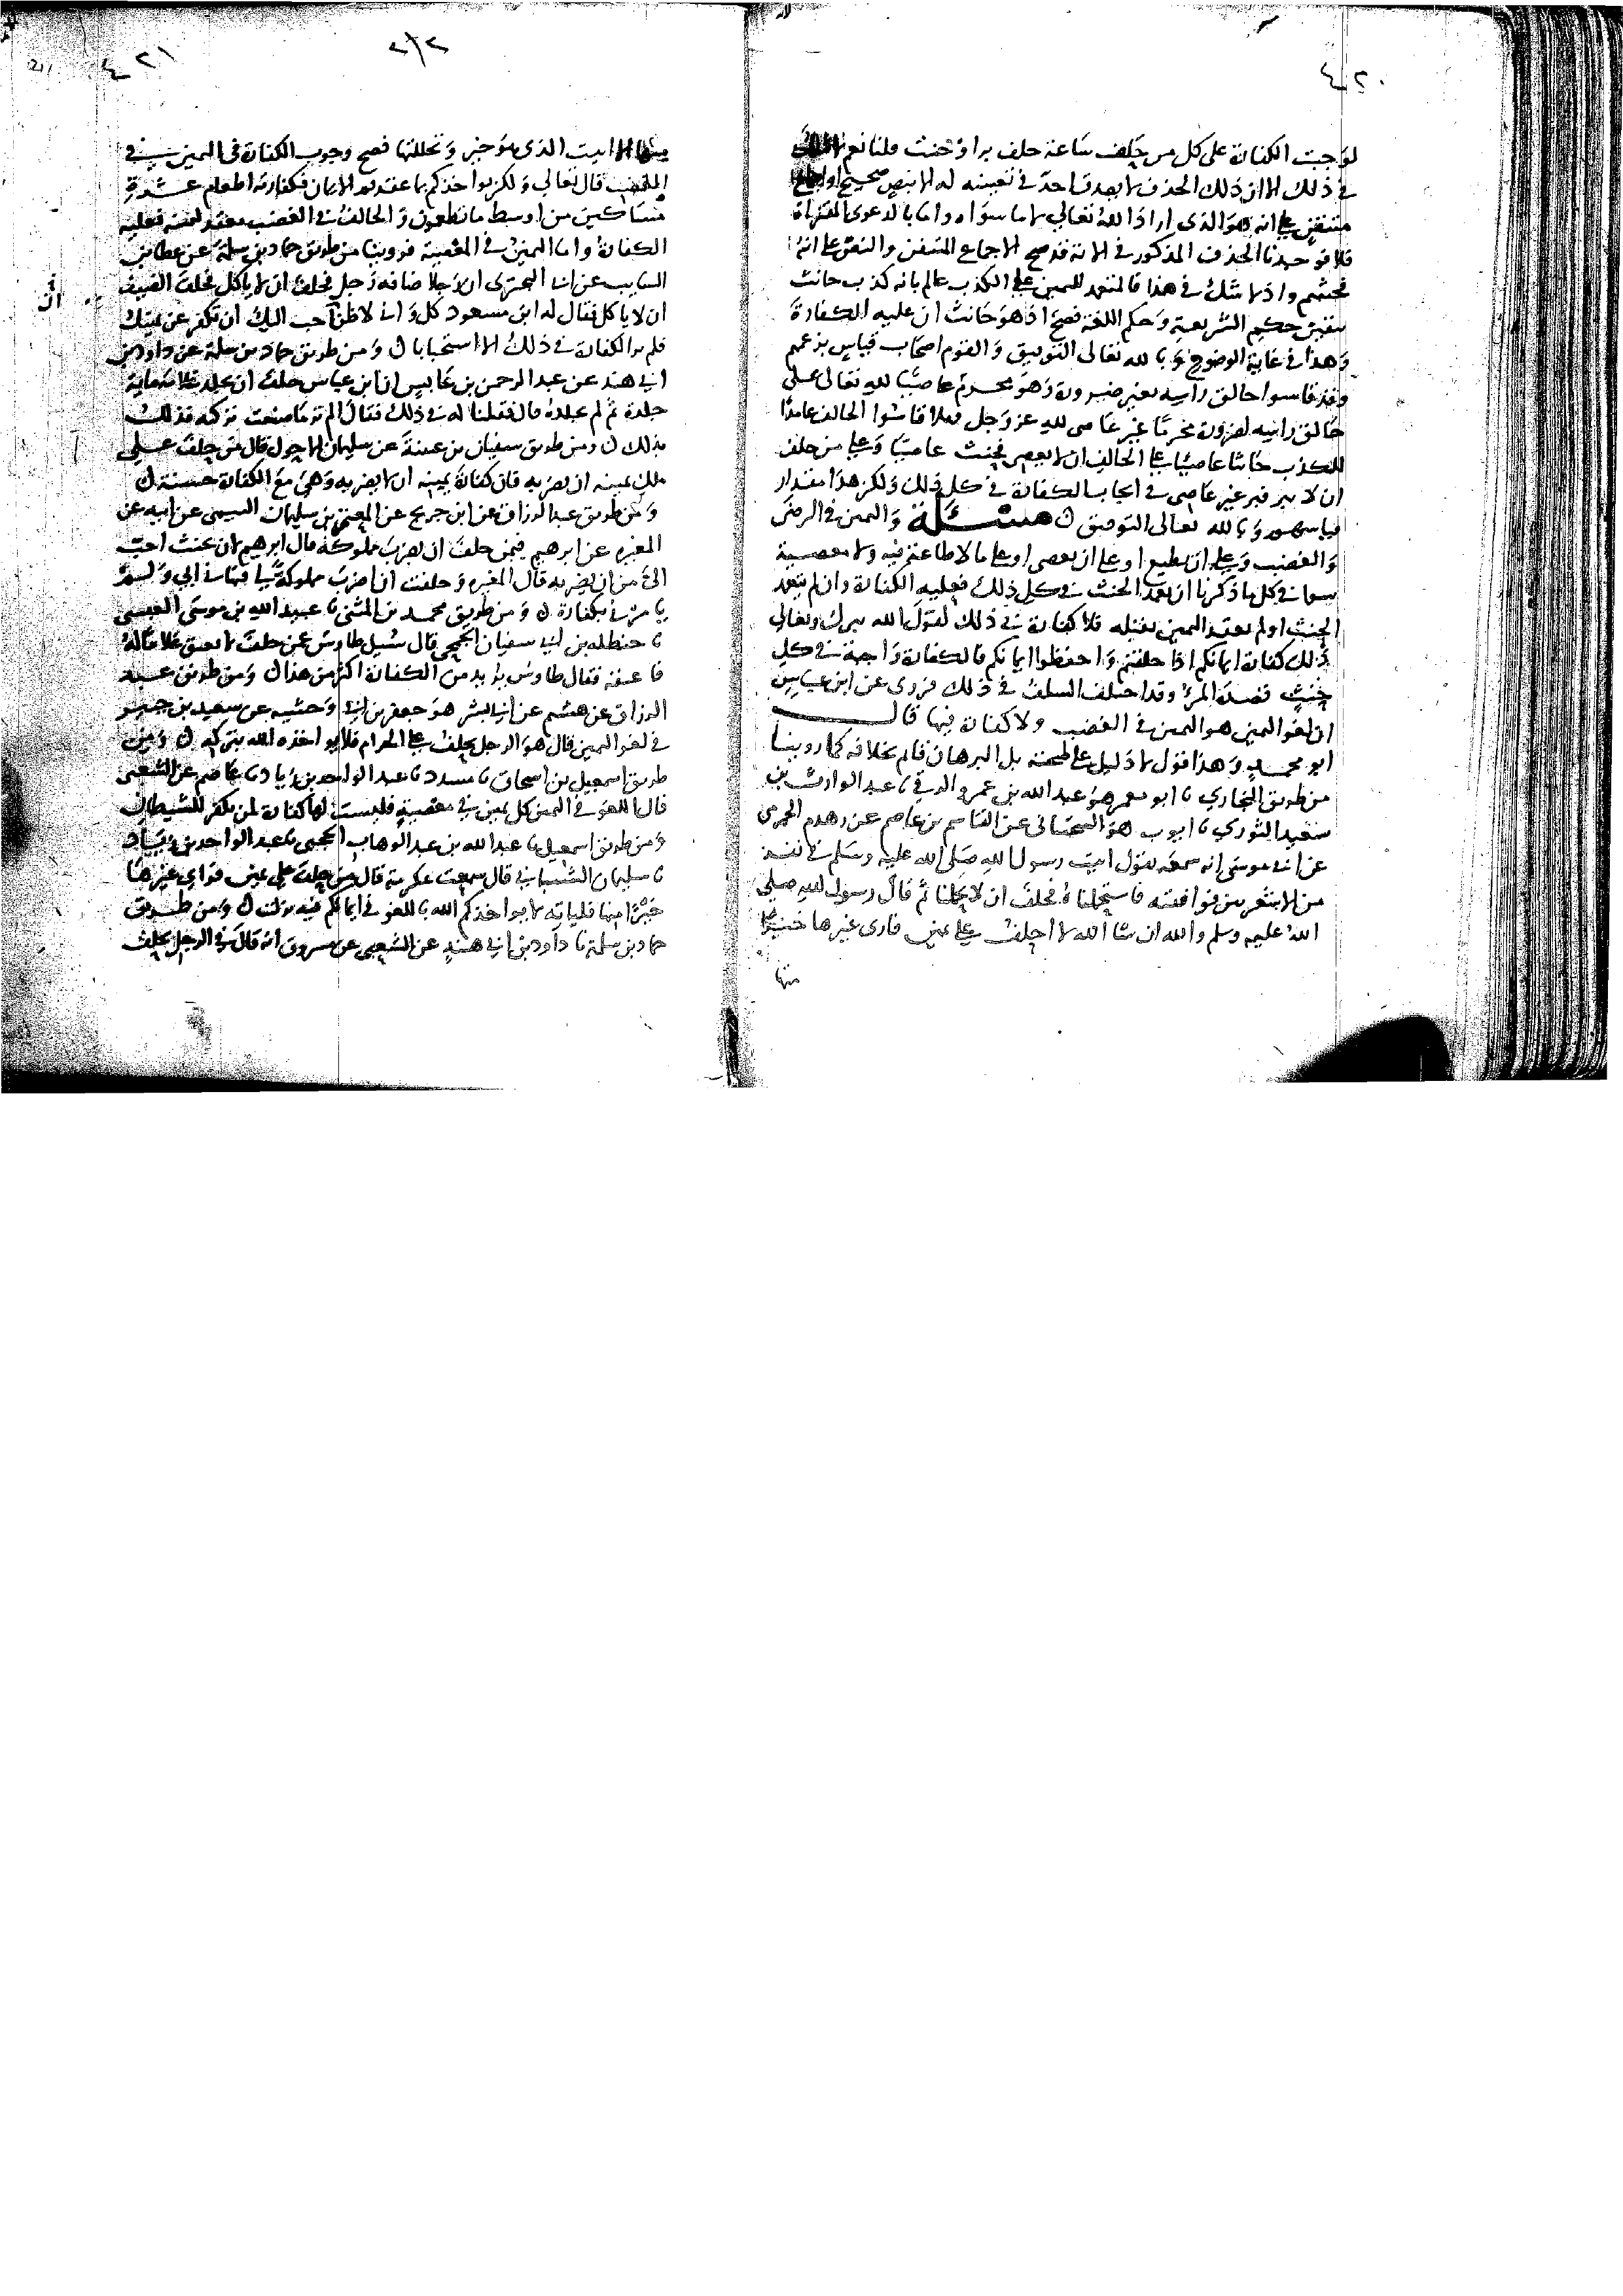 ٤٢٠
لوجبت الكفارة على كل من حلف ساعة حلف برا او حنث قلنا نعم
في ذلك الا ان ذلك الحذف لا يصدق احد في تعيينه له الا بنص صحيح او اجماع
متيقن على انه هو الذي اراد الله تعالى لا ما سواه واما بالدعوى المفتراة
فلا فوجدنا الحذف المذكور في الاية قد صح الاجماع المتيقن والنص على انه
فحنثتم واذ لا شك في هذا فالمتعمد لليمين على الكذب عالم بانه كذب حانث
بيقين حكم الشريعة وحكم اللغة فصح اذ هو حانث ان عليه الكفارة
وهذا في غاية الوضوح وبالله تعالى التوفيق والقوم اصحاب قياس بزعمهم
وقد قاسوا حالق راسه بغير ضرورة وهو محرم عاصيا لله تعالى على
حالق راسه لضرورة محرما غير عاصى لله عز وجل فهلا قاسوا الحالف عامدا
للكذب حانثا عاصيا على الحالف ان لا يعصي فحنث عاصيا وعلى من حلف
ان لا يبر فبر غير عاصى في ايجاب الكفارة في كل ذلك ولكن هذا مقدار
قياسهم وبالله تعالى التوفيق ن مسئلة واليمين في الرضى
والغضب وعلى ان يطيع او على ان يعصى او على ما لا طاعة فيه ولا معصية
سوا في كل ما ذكرنا ان تعمد الحنث في كل ذلك فعليه الكفارة وان لم يتعمد
الحنث او لم يعقد اليمين بقلبه فلا كفارة في ذلك لقول الله تبرك وتعالى
ذلك كفارة ايمانكم اذا حلفتم واحفظوا ايمانكم فالكفارة واجبة في كل
حنث قصده المرء وقد اختلف السلف في ذلك فروى عن ابن عباس
ان لغو اليمين هو اليمين في الغضب ولا كفارة فيها قال
ابو محمد وهذا قول لا دليل على صحته بل البرهان قائم بخلافه كما روينا
من طريق البخاري نا ابو معمر هو عبد الله بن عمرو الرقي نا عبد الوارث بن
سعيد الثوري نا ايوب هو السختيانى عن القاسم بن عاصم عن زهدم الجرمى
عن ابي موسى انه سمعه يقول اتيت رسول الله صلى الله عليه وسلم في نفر
من الاشعريين فوافقته فاستحملناه فحلف ان لا يحملنا ثم قال رسول الله صلى
الله عليه وسلم والله ان شا الله لا احلف على يمين فارى غيرها خيرا
منها
٢١٢
٤٢١
منها الا اتيت الذى هو خير وتحللتها فصح وجوب الكفارة في اليمين في
الغضب قال تعالى ولكن يواخذكم بما عقدتم الايمان فكفارته اطعام عشرة
مساكين من اوسط ما تطعمون والحالف في الغضب معقد ليمينه فعليه
الكفارة واما اليمين في المعصية فروينا من طريق حماد بن سلمة عن عطا بن
السايب عن ابي البخترى ان رجلا ضافه رجل فحلف ان لا ياكل فحلف الضيف
ان لا ياكل فقال له ابن مسعود كل وانى لاظن احب اليك ان تكفر عن يمينك
فلم ير الكفارة في ذلك الا استحبابا ن ومن طريق حماد بن سلمة عن داود بن
ابي هند عن عبد الرحمن بن عابس ان ابن عباس حلف ان يجلد غلامه ماية
جلدة ثم لم يجلده قال فقلنا له في ذلك فقال الم تر ما صنعت تركته فذلك
بذلك ن ومن طريق سفيان بن عيينة عن سليمان الاحول قال من حلف على
ملك يمينه ان يضربه فان كفارة يمينه ان لا يضربه وهي مع الكفارة حسنة ن
ومن طريق عبد الرزاق عن ابن جريج عن المعتمر بن سليمان التيمى عن ابيه عن
المغيره عن ابرهيم فيمن حلف ان يضرب مملوكه قال ابرهيم لان يحنث احب
الي من ان يضربه قال المغيره وحلفت ان اضرب مملوكة لي فنهاني ابي ولم
يامرني بكفارة ن ومن طريق محمد بن المثنى نا عبيد الله بن موسى العبسى
نا حنظله بن ابي سفيان الجمحى قال سئيل طاوس عن حلف لا يعتق غلاما له
فاعتقه فقال طاوس يريد من الكفارة اكثر من هذا ن ومن طريق عبد
الرزاق عن هشيم عن ابي بشر هو جعفر بن ابي وحشيه عن سعيد بن جبير
في لغو اليمين قال هو الرجل يحلف على الحرام فلا يواخذه الله بتركه ن ومن
طريق اسمعيل بن اسحاق نا مسدد نا عبد الواحد بن زياد نا عاصم عن الشعبى
قال اللغو في اليمين كل يمين في معصية فليست لها كفارة لمن يكفر للشيطان
ومن طريق اسمعيل نا عبد الله بن عبد الوهاب الحجبى نا عبد الواحد بن زياد
نا سليمان الشيباني قال سمعت عكرمة قال من حلف على يمين فراي غيرها
خيرا منها فلياته لا يواخذكم الله باللغو في ايمانكم فيه نزلت ن ومن طريق
حماد بن سلمة نا داود بن ابي هند عن الشعبى عن مسروق انه قال في الرجل يحلف